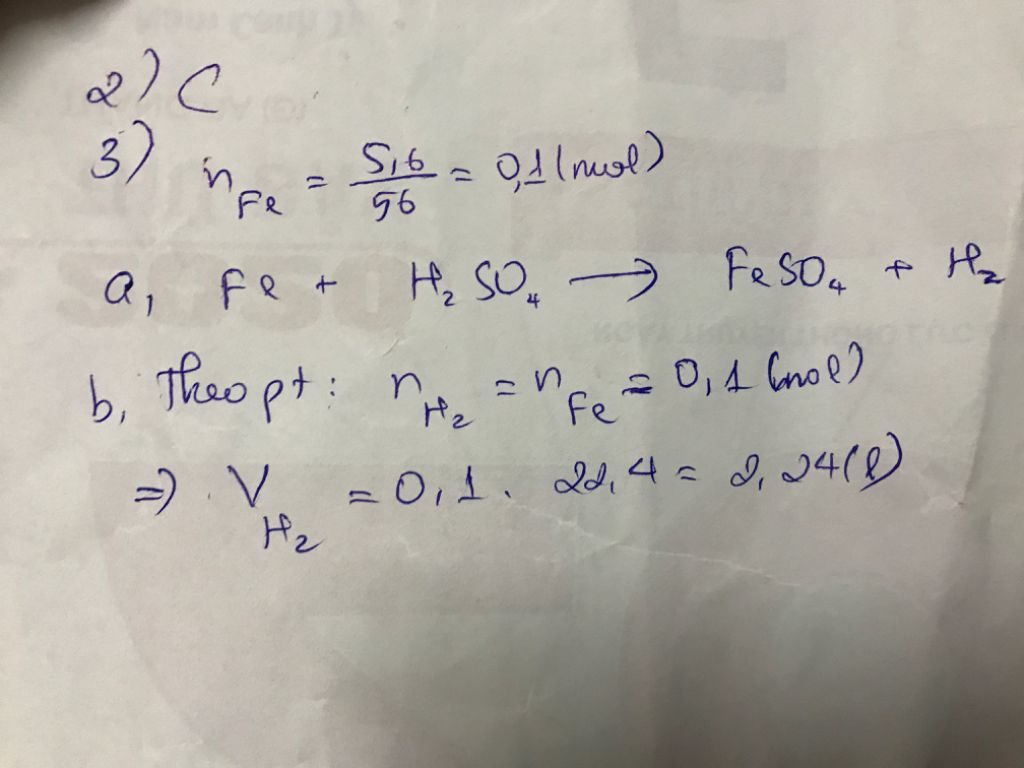 2) C
3) n_Fe = 5,6/56 = 0,1 (mol)
a, Fe + H₂SO₄ → FeSO₄ + H₂
b, Theo pt: n_H₂ = n_Fe = 0,1 (mol)
⇒ V_H₂ = 0,1. 22,4 = 2,24 (l)